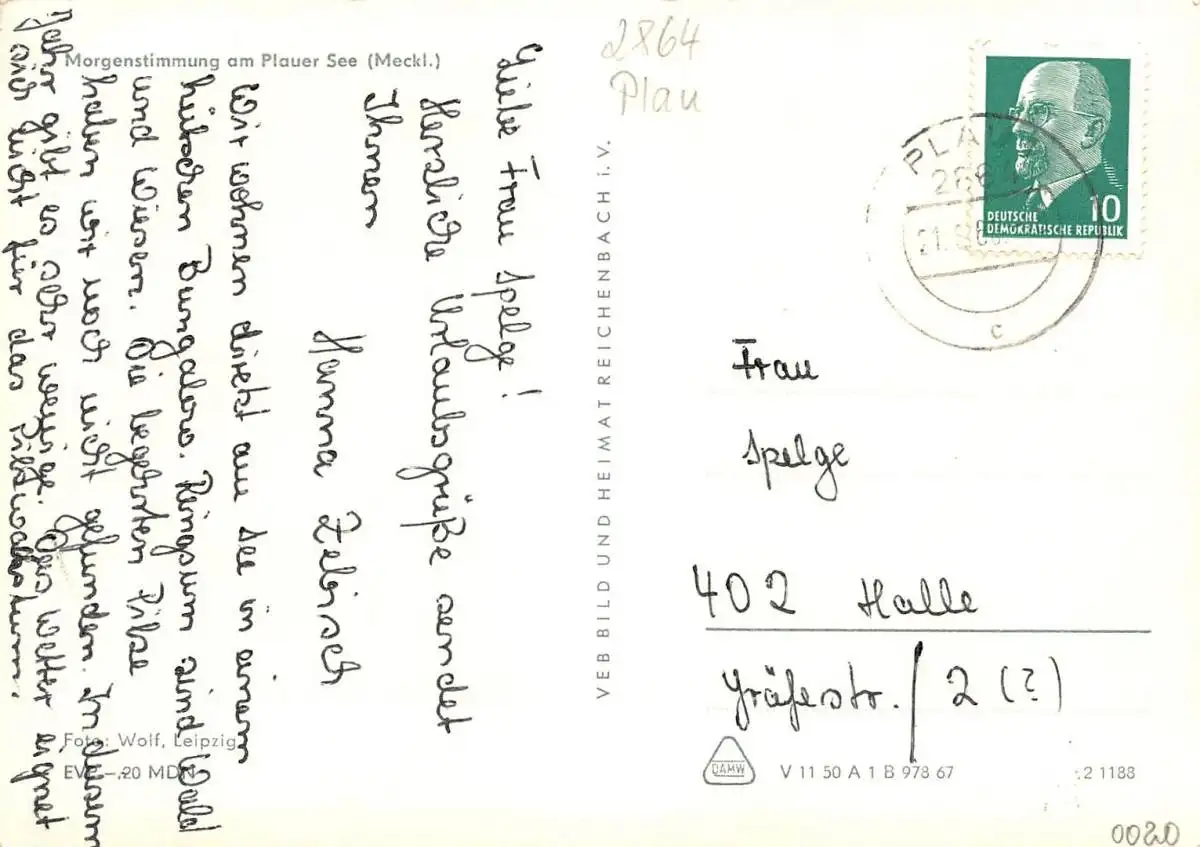 Morgenstimmung am Plauer See (Meckl.)
Liebe Frau Spelge!
Herzliche Urlaubsgrüße sendet
Ihnen
Hanna Zebisch
Wir wohnen direkt am See in einem
hübschen Bungalow. Ringsum sind Wald
und Wiesen. Die begehrten Pilze
haben wir noch nicht gefunden. In diesem
Jahr gibt es sehr wenige. Das Wetter eignet
sich nicht für das Pilzwachstum.
Foto: Wolf, Leipzig
EVP –.20 MDN
VEB BILD UND HEIMAT REICHENBACH i.V.
2864
Plau
PLAU
2864
21.
c
10
DEUTSCHE
DEMOKRATISCHE REPUBLIK
Frau
Spelge
402 Halle
Gräfestr./2 (?)
DAMW
V 11 50 A 1 B 978 67
2 1188
0020